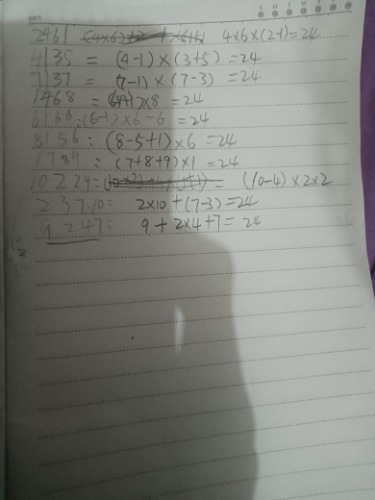 2461 4×6×(2-1)=24
4135 = (4-1)×(3+5)=24
7137 = (7-1)×(7-3)=24
1468 = ×8=24
6166:(6-1)×6-6=24
8156:(8-5+1)×6=24
1789:(7+8+9)×1=24
10.224= = (10-4)×2×2
237.10= 2×10+(7-3)=24
9247= 9+2×4+7=24